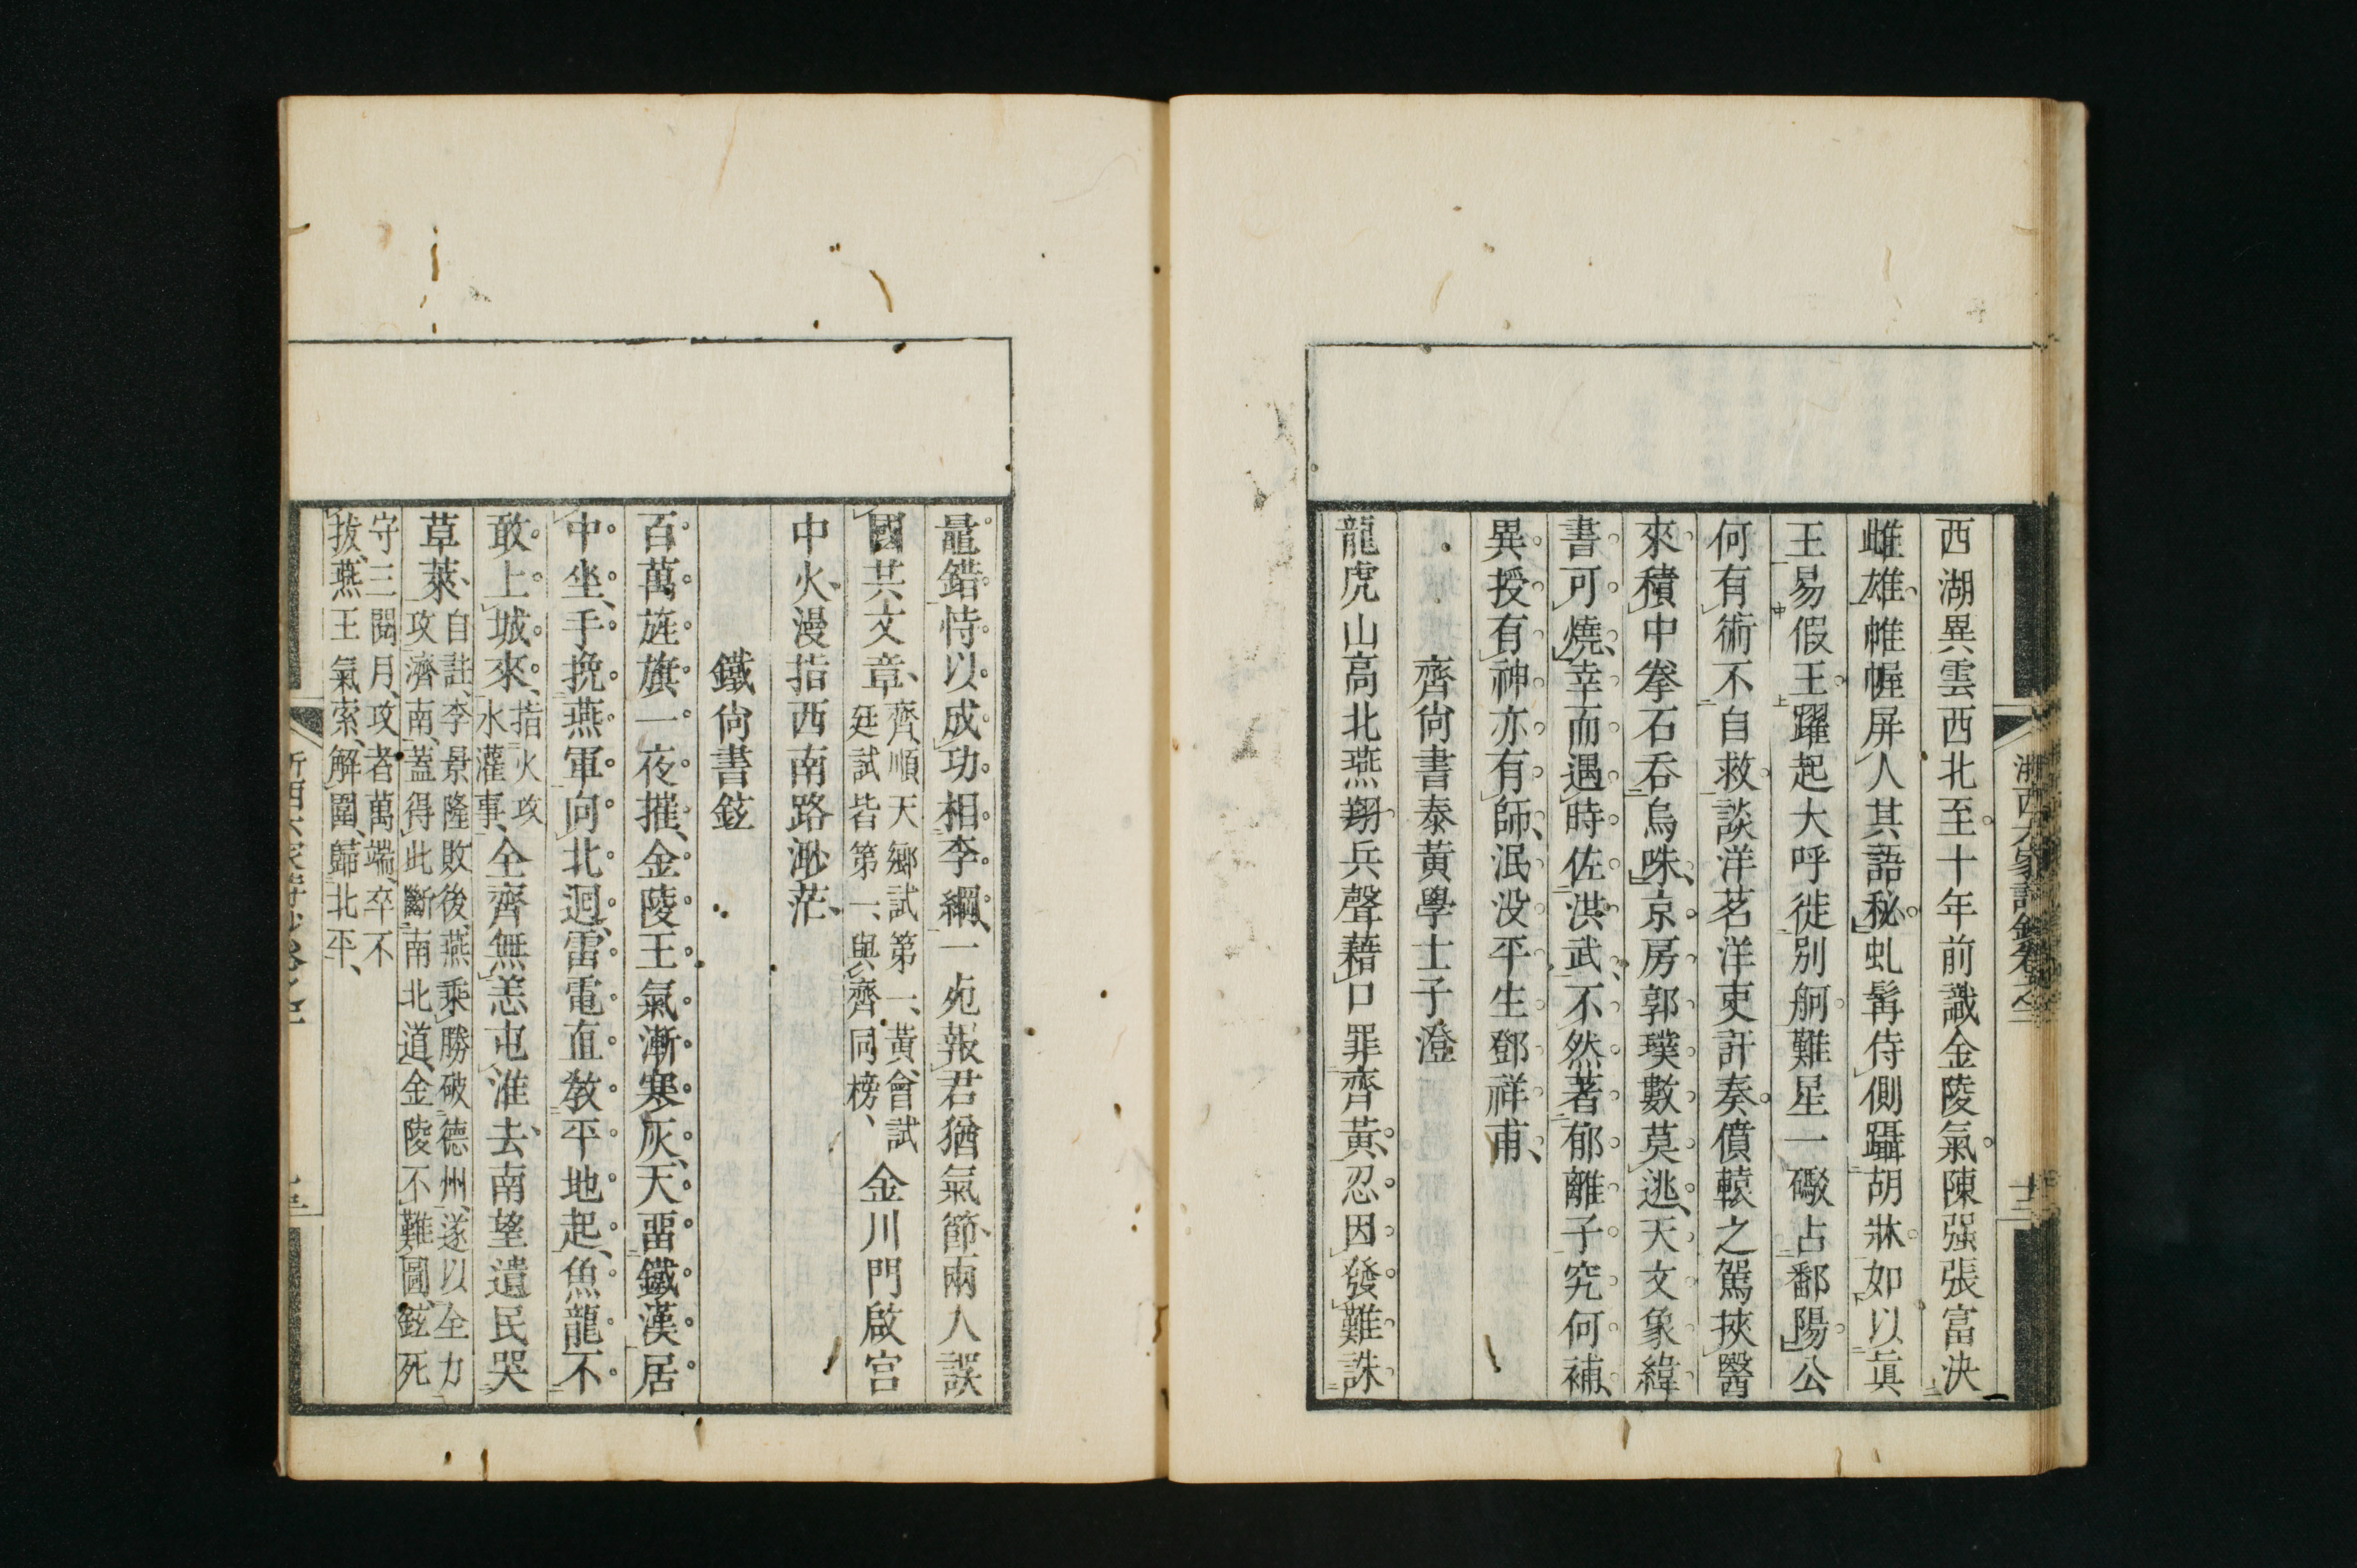 西湖異雲西北至十年前識金陵氣陳强張富決
雌雄帷幄屏人其語秘虬髯侍側躡胡牀如以眞
王易假王躍起大呼徙別舸難星一礮占鄱陽公
何有術不自救談洋茗洋吏訐奏僨轅之駕挾醫
來積中拳石吞烏咮京房郭璞數莫逃天文象緯
書可燒幸而遇時佐洪武不然著郁離子究何補
異授有神亦有師泯没平生鄧祥甫
齊尙書泰黃學士子澄
龍虎山高北燕翔兵聲藉口罪齊黃忍因發難誅
鼂錯恃以成功相李綱一死報君猶氣節兩人誤
國共文章齊順天鄕試第一黃會試
廷試皆第一與齊同榜金川門啟宫
中火漫指西南路渺茫
鐵尙書鉉
百萬旌旗一夜摧金陵王氣漸寒灰天畱鐵漢居
中坐手挽燕軍向北迴雷電直教平地起魚龍不
敢上城來指火攻
水灌事全齊無恙屯淮去南望遺民哭
草萊自註李景隆敗後燕乘勝破德州遂以全力
攻濟南蓋得此斷南北道金陵不難圖鉉死
守三閱月攻者萬端卒不
拔燕王氣索解圍歸北平